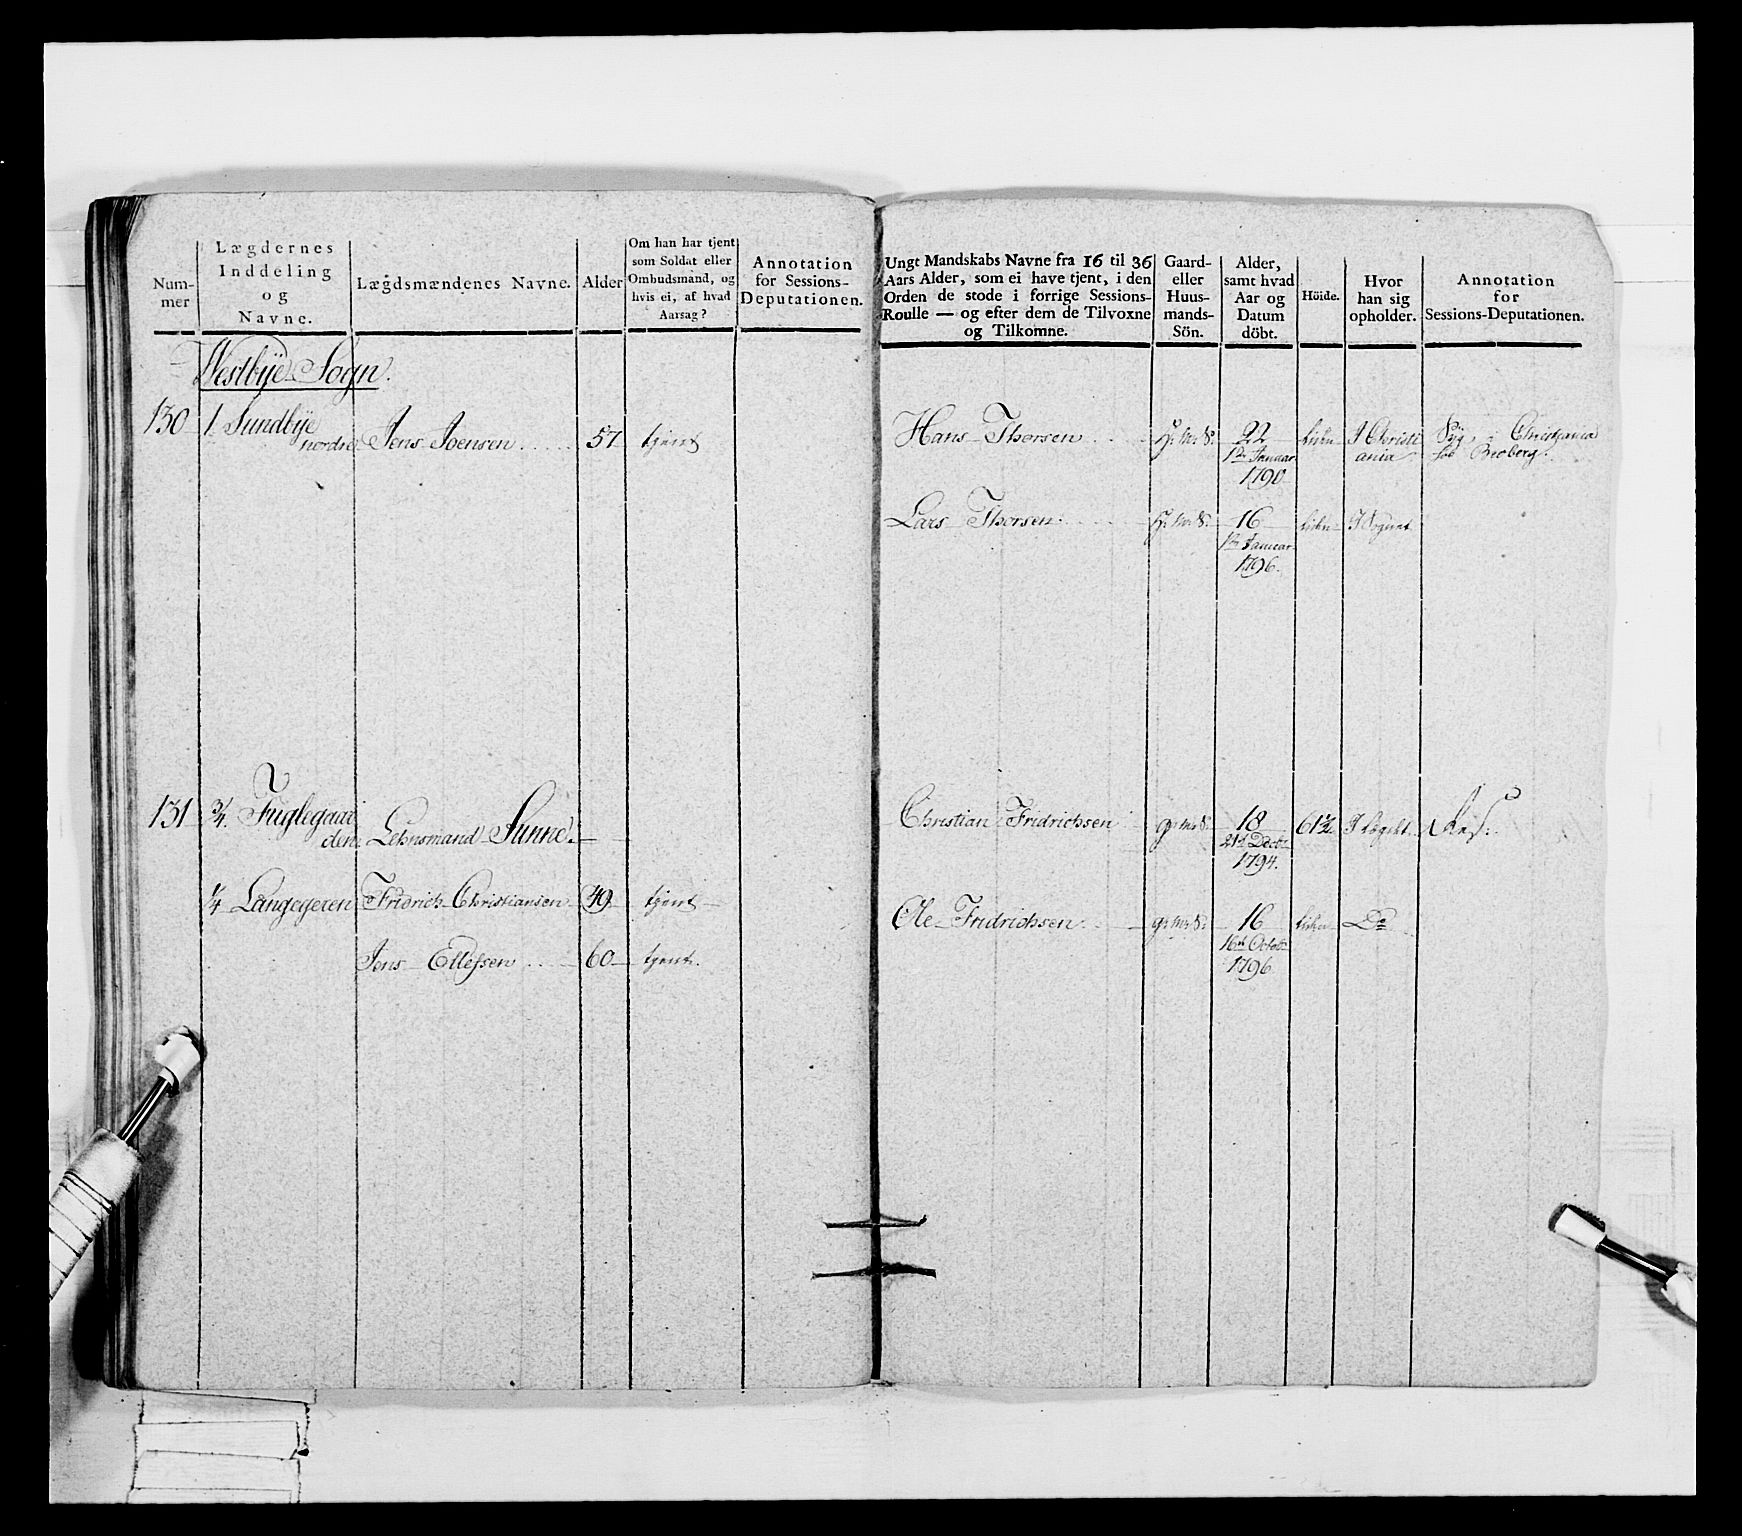 Num-
mer
Lægdernes
Inddeling
og
Navne.
Lægdsmændenes Navne.
Alder
Om han har tjent
som Soldat eller
Ombudsmand, og
hvis ei, af hvad
Aarsag?
Annotation
for Sessions-
Deputationen.
Westbÿe Sogn.
130 1 Sundbÿe
nordre Jens Joensen 57 tjent
131 3/4 Fuglegaar
den Lehnsmand Sunne.
1/4 Langegeren Fridrich Christiansen 49 tjent
Jens Ellefsen 60 tjent.
Ungt Mandskabs Navne fra 16 til 36
Aars Alder, som ei have tjent, i den
Orden de stode i forrige Sessions-
Roulle — og efter dem de Tilvoxne
og Tilkomne.
Gaard-
eller
Huus-
mands-
Sön.
Alder,
samt hvad
Aar og
Datum
döbt.
Höide.
Hvor
han sig
opholder.
Annotation
for
Sessions-Deputationen.
Hans Thorsen 22 I Christi Sÿg i Christiania
1de Januar ania
1790
Lars Thorsen 16 I Sognet
1de Januar
1796.
Christian Fridrichsen gr: ms S: 18 61 1/2 I Lægdet
21de Decbr
1794.
Ole Fridrichsen gr: ms S: 16 Do
16de Octobr
1796